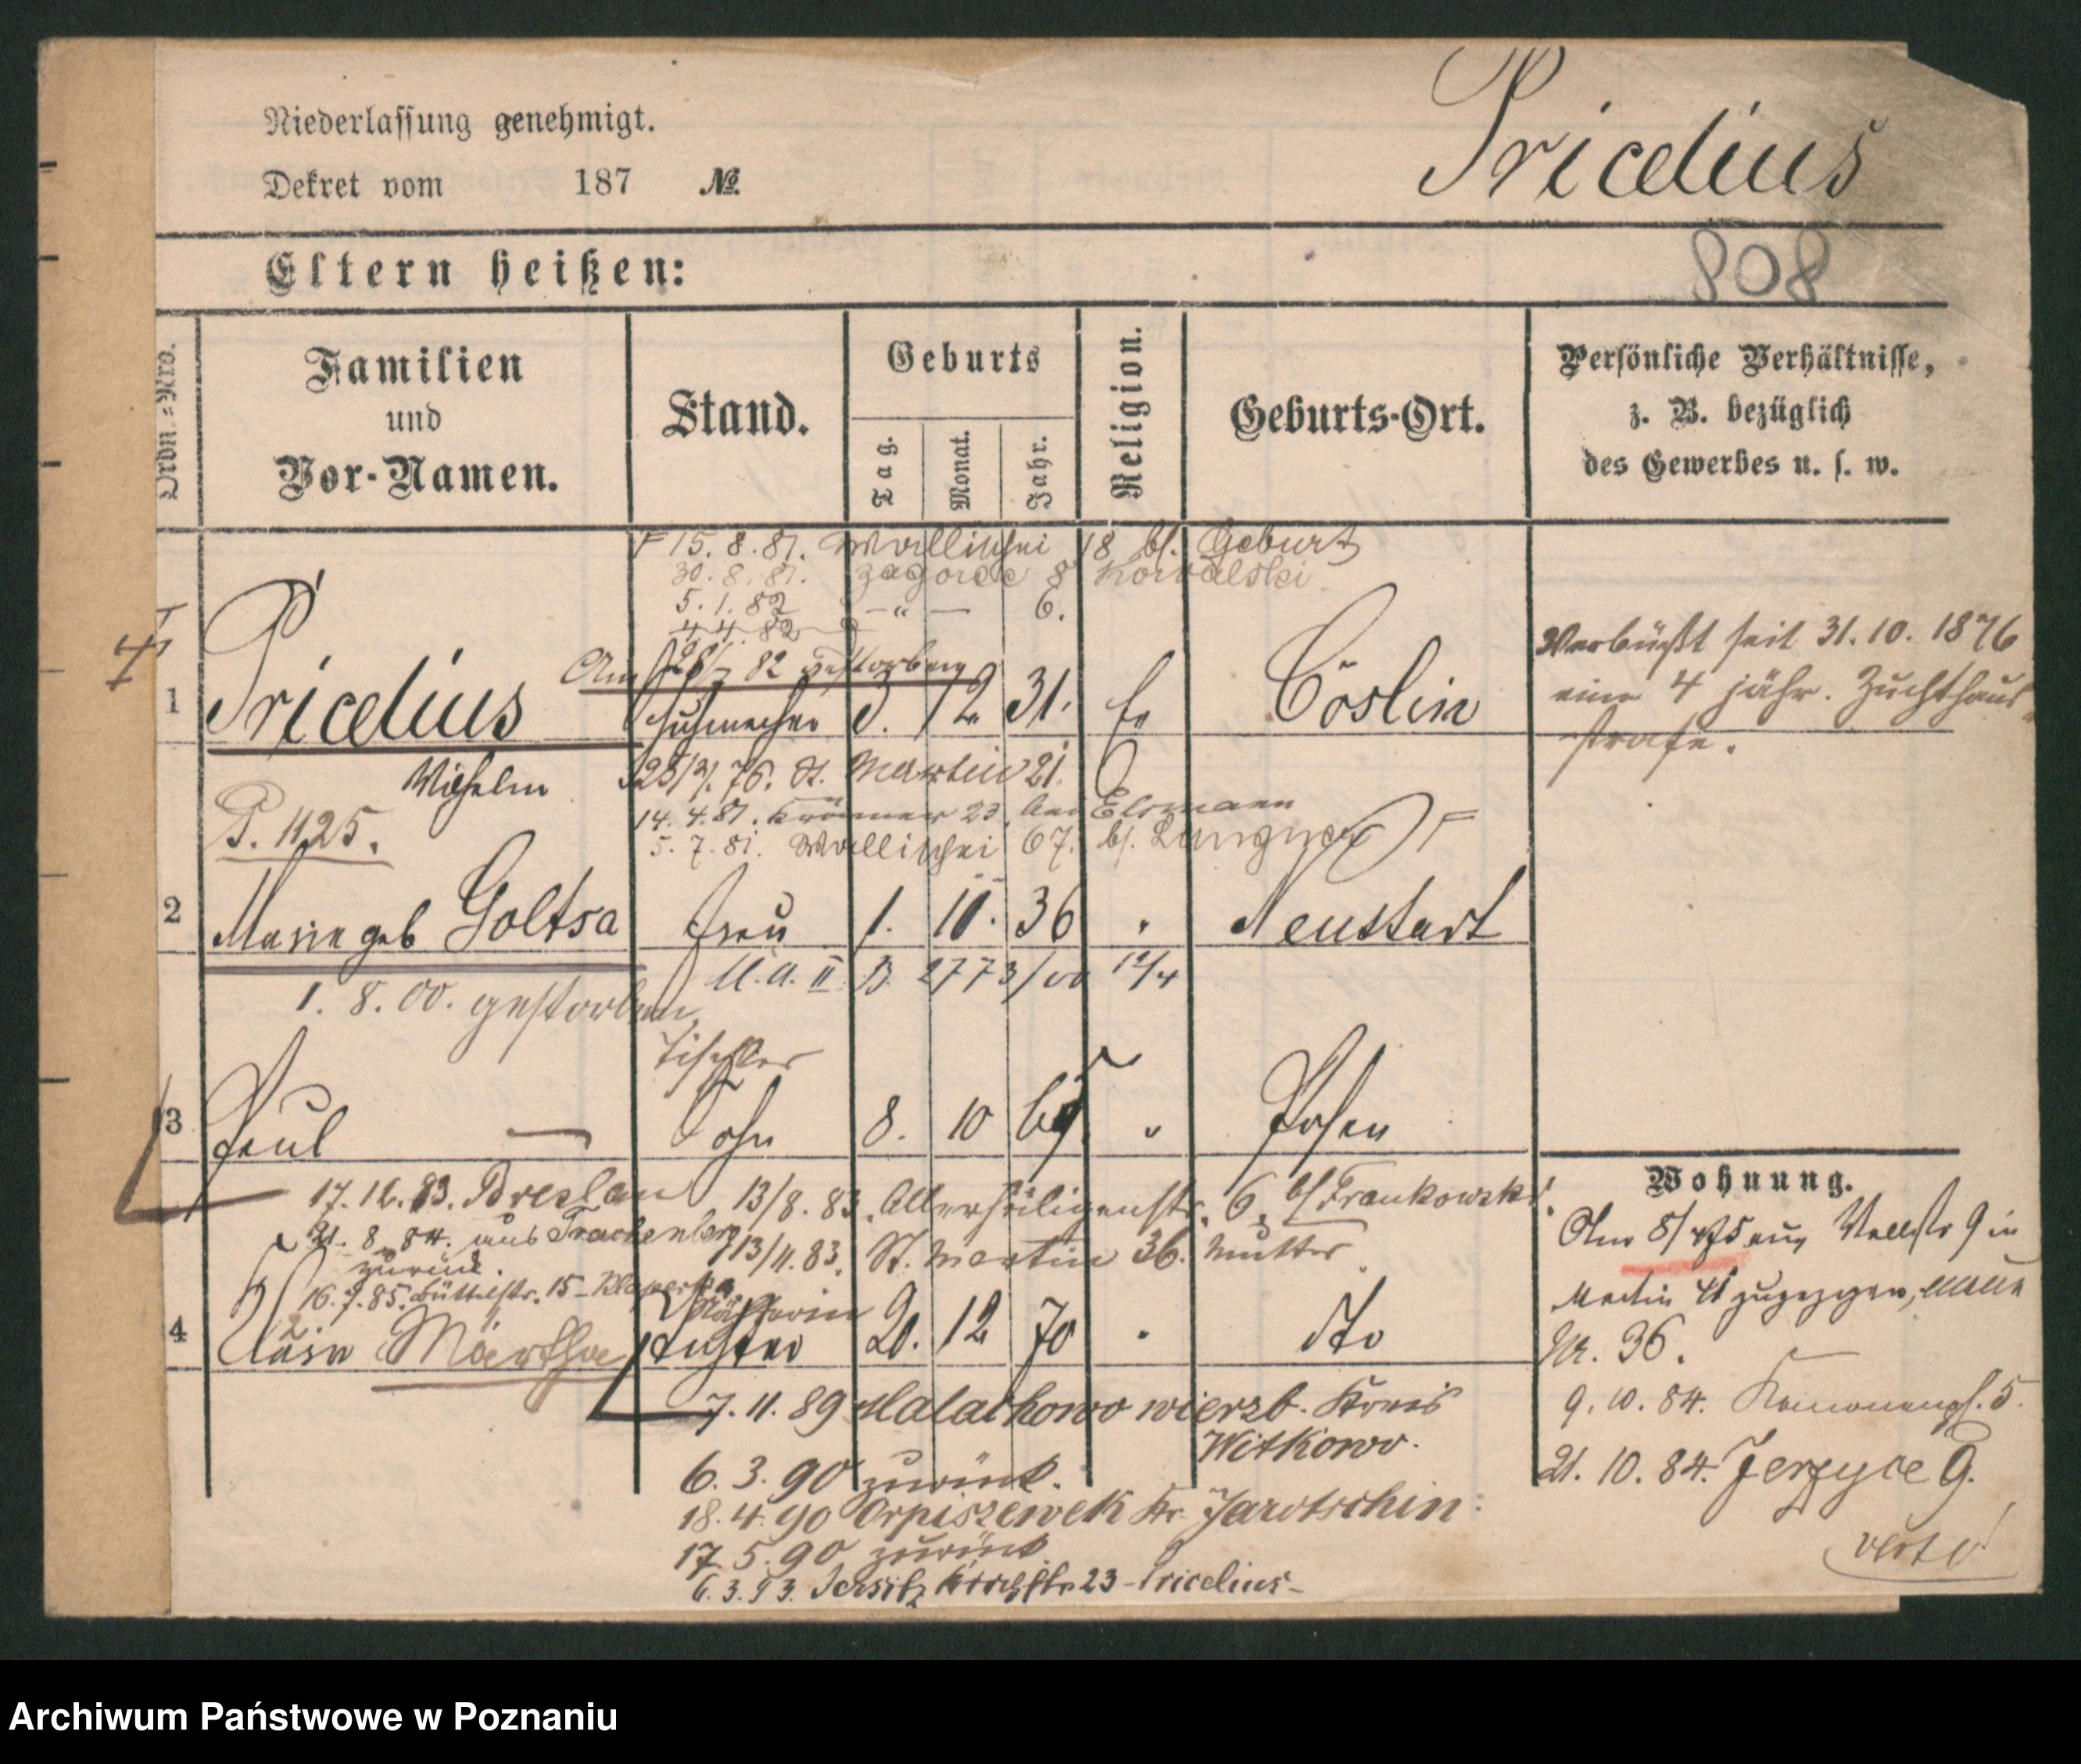 Niederlassung genehmigt.
Dekret vom 187 No.
Pricelius
808
Eltern heißen:
Ordn.-Nro.
Familien
und
Vor-Namen.
Stand.
Geburts
Tag.
Monat.
Jahr.
Religion.
Geburts-Ort.
Persönliche Verhältnisse,
z. B. bezüglich
des Gewerbes u. s. w.
15. 8. 81. Wallischei 18 bf. Geburt
30. 8. 81. Zagorce 8 Kowalski
5. 1. 82 — " — 6.
4. 4. 82
Am 28/7 82 gestorben
1 Pricelius Schuhmacher 3. 12 31. Ev Cöslin
Verbüßt seit 31. 10. 1876
eine 4 jähr. Zuchthaus
strafe.
Wilhelm 76. St. Martin 21.
P. 1125.
14. 4. 81. Krämer 23. bei Elsmann
5. 7. 81. Wallischei 67. bf.
2 Marie geb Goltsa Frau 1. 10. 36 " Neustadt
U. A. II B 2773/00 12/4
1. 8. 00. gestorben
Tischler
3 Paul — Sohn 8. 10 65 " Posen
17. 12. 83. Breslau
13/8. 83. Allerheiligenstr. 6. bf Frankowski.
21. 8. 84. aus Trachenberg
zurück.
13/11. 83. St. Martin 36. Mutter
16. 7. 85. Büttelstr. 15
Näherin
4 Martha Tochter 20. 12 70 " dto
7. 11. 89 Malachowo wierzb. Kreis
Witkowo.
6. 3. 90 zurück.
18. 4. 90 Orpiszewek Kr. Jarotschin
17. 5. 90 zurück
6. 3. 93. Jersitz Kirchstr 23 - Pricelius -
Wohnung.
Am 8/ 75 aus Wallstr 9 in
Martin 41 zugezogen,
Nr. 36.
9. 10. 84. 5.
21. 10. 84. Jerzyce 9.
verte!
Archiwum Państwowe w Poznaniu